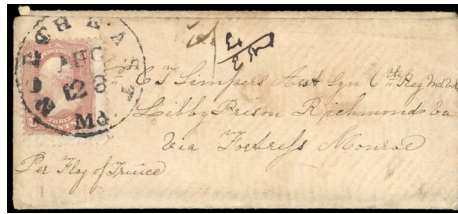 NORTH EAST
AUG
12
Md.
C T Simpers Asst Sgn 6th Reg Md Vols
Libby Prison Richmond Va
Via Fortress Monroe
Per Flag of Truce